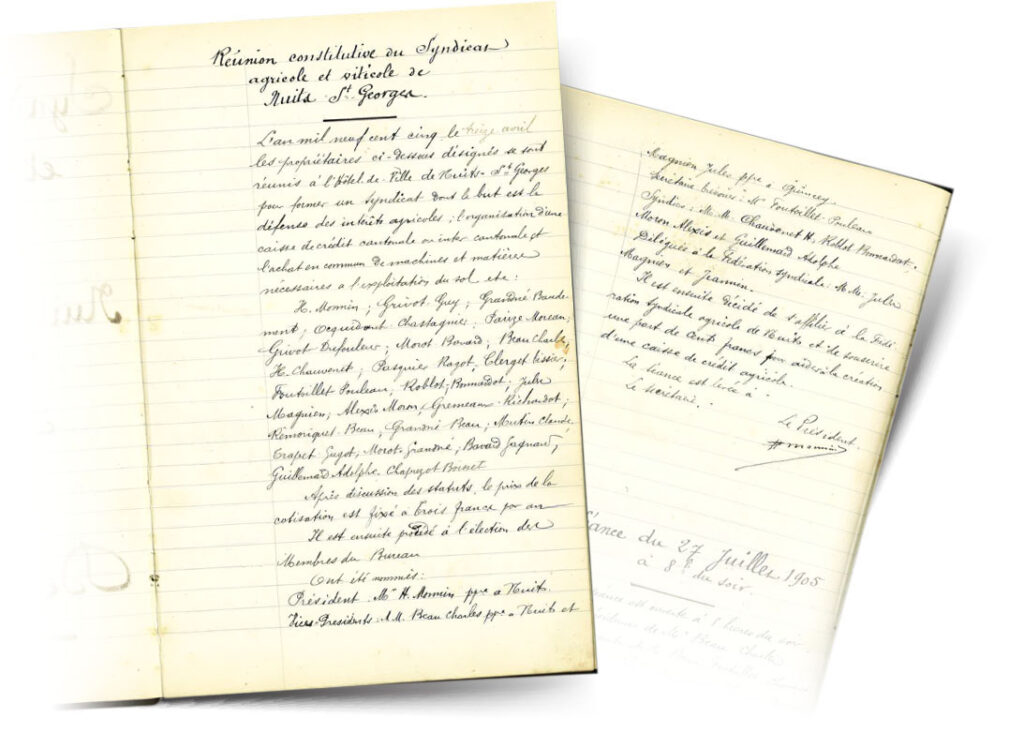 Réunion constitutive du Syndicat
agricole et viticole de
Nuits St Georges.
L'an mil neuf cent cinq le treize avril
les propriétaires ci-dessous désignés se sont
réunis à l'Hôtel-de-Ville de Nuits-St Georges
pour former un syndicat dont le but est la
défense des intérêts agricoles ; l'organisation d'une
caisse de crédit cantonale ou inter cantonale et
l'achat en commun de machines et matière
nécessaires à l'exploitation du sol etc :
H. Monnin ; Grivot Guy ; Grandné Baude-
ment ; Chastagnier ; Faize Moreau ;
Grivot Defouleur ; Morot Bovard ; Beau Charles ;
H. Chauvenet ; Pasquier Ragot ; Clerget
Foutoillet Pouleau, Roblot-Bonnardot ; Jules
Magnien ; Alexis Moron ; Gremeaux Richardot ;
Remoriquet-Beau ; Grandné Beau ; Mutin Claude,
Trapet Gugot ; Morot-Grandné ; Bavard Gagnard ;
Guillemard Adolphe - Chapuzot Boisset
Après discussion des statuts, le prix de la
cotisation est fixé à trois francs par an
Il est ensuite procédé à l'élection des
Membres du Bureau
Ont été nommés :
Président Mr H. Monnin ppre à Nuits.
Vice-Présidents. M.M. Beau Charles ppre à Nuits et
Magnien Jules ppre à Quincey
Secrétaire trésorier : Mr Foutoillet-Pouleau
Syndics : M.M. Chauvenet H, Roblot Bonnardot,
Moron Alexis et Guillemard Adolphe
Délégués à la Fédération syndicale : M.M. Jules
Magnien et Jeannin.
Il est ensuite décidé de s'affilier à la Fédé
ration syndicale agricole de Nuits et de souscrire
une part de cent francs pour aider à la création
d'une caisse de crédit agricole.
La séance est levée à
Le Secrétaire.
Le Président.
H Monnin
éance du 27 Juillet 1905
à 8h du soir.
séance est ouverte à 8 heures du soir
de Mr Beau Charles